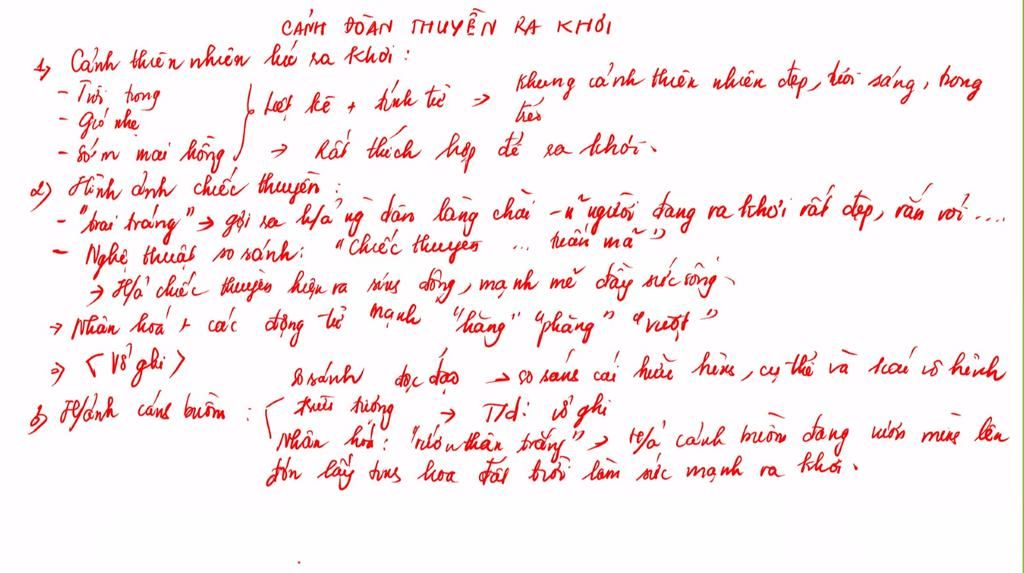 CẢNH ĐOÀN THUYỀN RA KHƠI
1) Cảnh thiên nhiên lúc ra khơi :
- Trời trong
- Gió nhẹ
- Sớm mai hồng
Liệt kê + tính từ => Khung cảnh thiên nhiên đẹp, tươi sáng, trong trẻo
-> Rất thích hợp để ra khơi.
2) Hình ảnh chiếc thuyền :
- "trai tráng" -> gợi ra h/ả ng dân làng chài - n~ người đang ra khơi rất đẹp, rắn rỏi ....
- Nghệ thuật so sánh: "Chiếc thuyền ... tuấn mã"
-> H/ả chiếc thuyền hiện ra sống động, mạnh mẽ đầy sức sống.
-> Nhân hoá + các động từ mạnh "hăng" "phăng" "vượt"
=> < Vở ghi >
3) H/ảnh cánh buồm : so sánh độc đáo -> so sánh cái hữu hình, cụ thể và cái vô hình
trừu tượng -> T/d: vở ghi
Nhân hoá: "rướn thân trắng" -> H/ả cánh buồm đang vươn mình lên
đón lấy tinh hoa đất trời làm sức mạnh ra khơi.